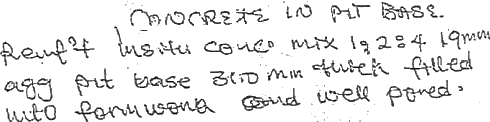 CONCRETE IN PIT BASE.
Reinf't insitu conc. mix 1:2:4 19mm
agg pit base 300 mm thick filled
into formwork and well pored.